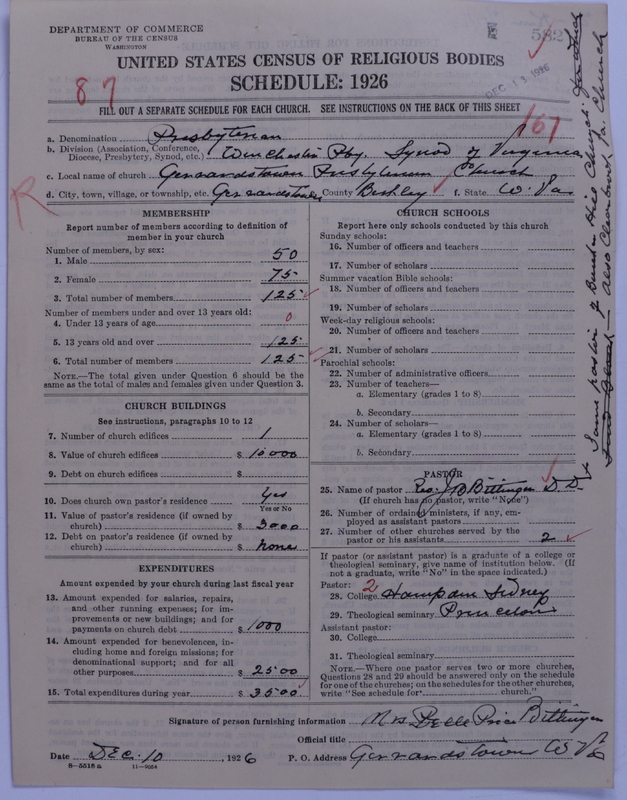 DEPARTMENT OF COMMERCE
BUREAU OF THE CENSUS
WASHINGTON
582
UNITED STATES CENSUS OF RELIGIOUS BODIES
SCHEDULE: 1926
DEC 13 1926
87
FILL OUT A SEPARATE SCHEDULE FOR EACH CHURCH. SEE INSTRUCTIONS ON THE BACK OF THIS SHEET
161
a. Denomination Presbyterian
b. Division (Association, Conference, Diocese, Presbytery, Synod, etc.) Winchester Pby, Synod of Virginia
c. Local name of church Gerrardstown Presbyterian Church
d. City, town, village, or township, etc. Gerrardstown County Berkley f. State W. Va
R
MEMBERSHIP
Report number of members according to definition of
member in your church
Number of members, by sex:
1. Male 50
2. Female 75
3. Total number of members 125
Number of members under and over 13 years old:
4. Under 13 years of age 0
5. 13 years old and over 125
6. Total number of members 125
NOTE.—The total given under Question 6 should be the
same as the total of males and females given under Question 3.
CHURCH BUILDINGS
See instructions, paragraphs 10 to 12
7. Number of church edifices 1
8. Value of church edifices $ 10000
9. Debt on church edifices $
10. Does church own pastor's residence Yes
Yes or No
11. Value of pastor's residence (if owned by
church) $ 3000
12. Debt on pastor's residence (if owned by
church) $ None
EXPENDITURES
Amount expended by your church during last fiscal year
13. Amount expended for salaries, repairs,
and other running expenses; for im-
provements or new buildings; and for
payments on church debt $ 1000
14. Amount expended for benevolences, in-
cluding home and foreign missions; for
denominational support; and for all
other purposes $ 2500
15. Total expenditures during year $ 3500
CHURCH SCHOOLS
Report here only schools conducted by this church
Sunday schools:
16. Number of officers and teachers
17. Number of scholars
Summer vacation Bible schools:
18. Number of officers and teachers
19. Number of scholars
Week-day religious schools:
20. Number of officers and teachers
21. Number of scholars
Parochial schools:
22. Number of administrative officers
23. Number of teachers—
a. Elementary (grades 1 to 8)
b. Secondary
24. Number of scholars—
a. Elementary (grades 1 to 8)
b. Secondary
PASTOR
25. Name of pastor Rev. Bittinger D.D.
(If church has no pastor, write "None")
26. Number of ordained ministers, if any, em-
ployed as assistant pastors
27. Number of other churches served by the
pastor or his assistants 2
If pastor (or assistant pastor) is a graduate of a college or
theological seminary, give name of institution below. (If
not a graduate, write "No" in the space indicated.)
Pastor: 2
28. College Hampden Sidney
29. Theological seminary Princeton
Assistant pastor:
30. College
31. Theological seminary
NOTE.—Where one pastor serves two or more churches,
Questions 28 and 29 should be answered only on the schedule
for one of the churches; on the schedules for the other churches,
write "See schedule for church."
Same pastor of Bunker Hill Church
also Clearbrook Va. Church
Signature of person furnishing information Mrs Belle Price Bittinger
Official title
Date Dec. 10, 1926 P. O. Address Gerrardstown W Va
8—5518 a 11—9054